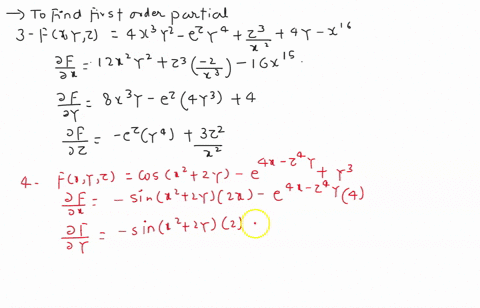 → To find first order partial
3- F(x,y,z) = 4x³y² - e^z y⁴ + z³/x² + 4y - x¹⁶
∂F/∂x = 12x²y² + z³(-2/x³) - 16x¹⁵.
∂F/∂y = 8x³y - e^z(4y³) + 4
∂F/∂z = -e^z(y⁴) + 3z²/x²
4- F(x,y,z) = cos(x²+2y) - e^(4x-z⁴y) + y³
∂F/∂x = -sin(x²+2y)(2x) - e^(4x-z⁴y)(4)
∂F/∂y = -sin(x²+2y)(2)